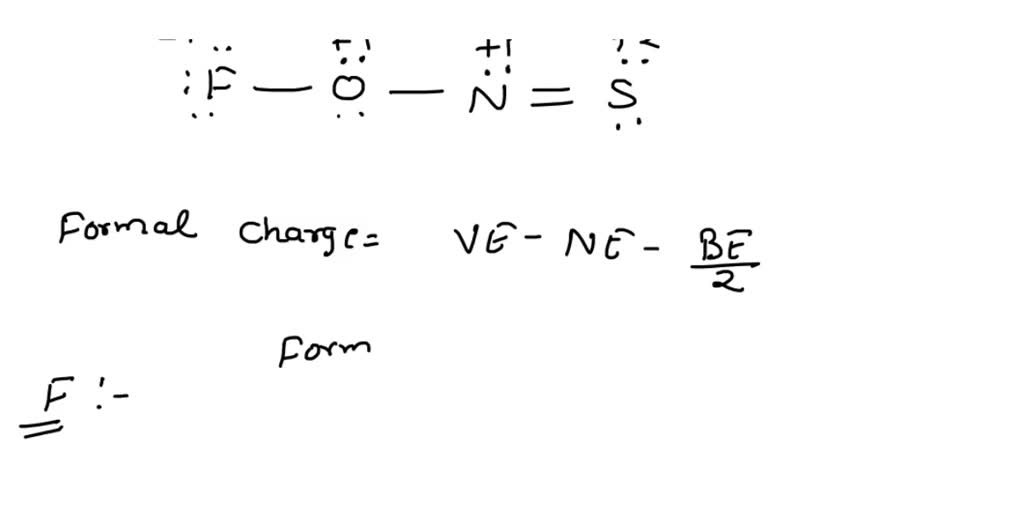 :F — O — N = S
Formal Charge = VE - NE - BE/2
Form
F :-